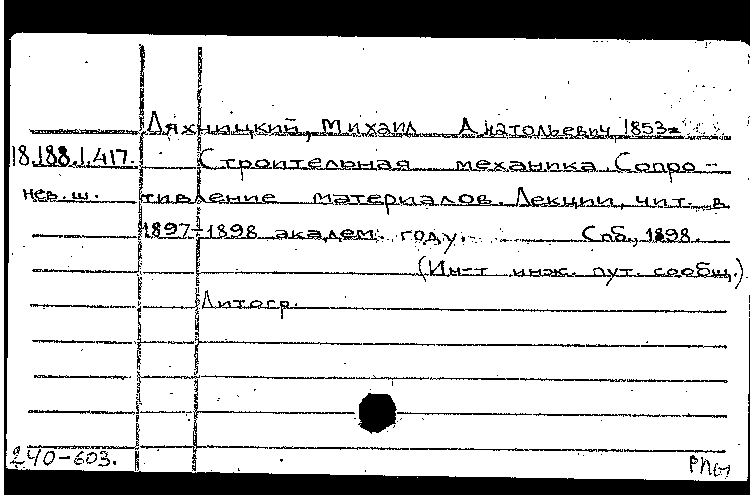 Ляхницкий, Михаил Анатольевич, 1853-
18.188.1.417. Строительная механика. Сопро-
нев. ш. тивление материалов. Лекции, чит. в
1897-1898 академ. году. Спб., 1898.
(Ин-т инж. пут. сообщ.)
Литогр.
240-603.